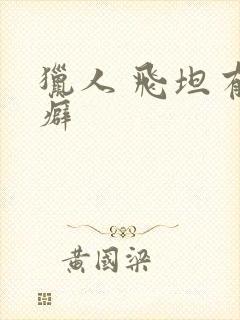 獵人 飛坦有
癖
黃國梁